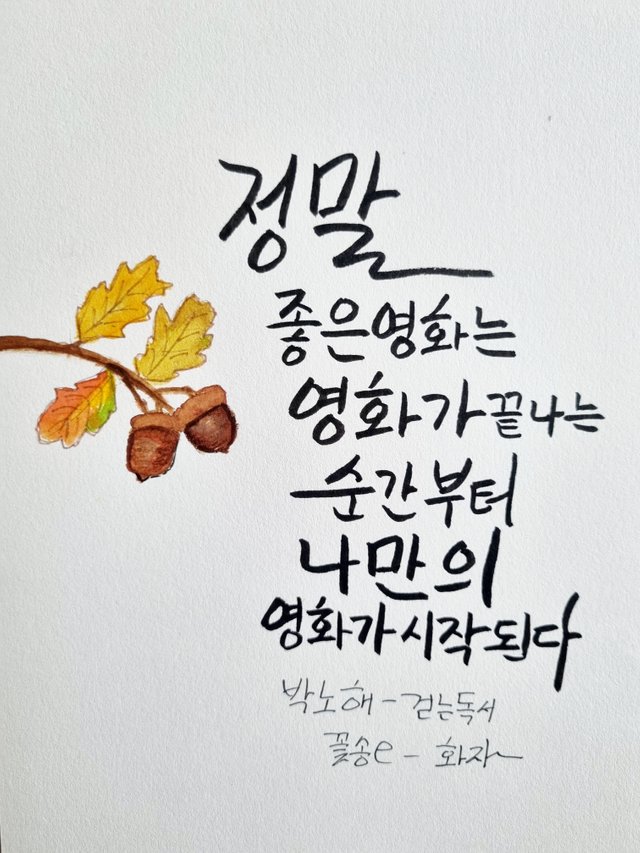 정말
좋은 영화는
영화가 끝나는
순간부터
나만의
영화가 시작된다
박노해 - 걷는독서
꽃송e - 화자~